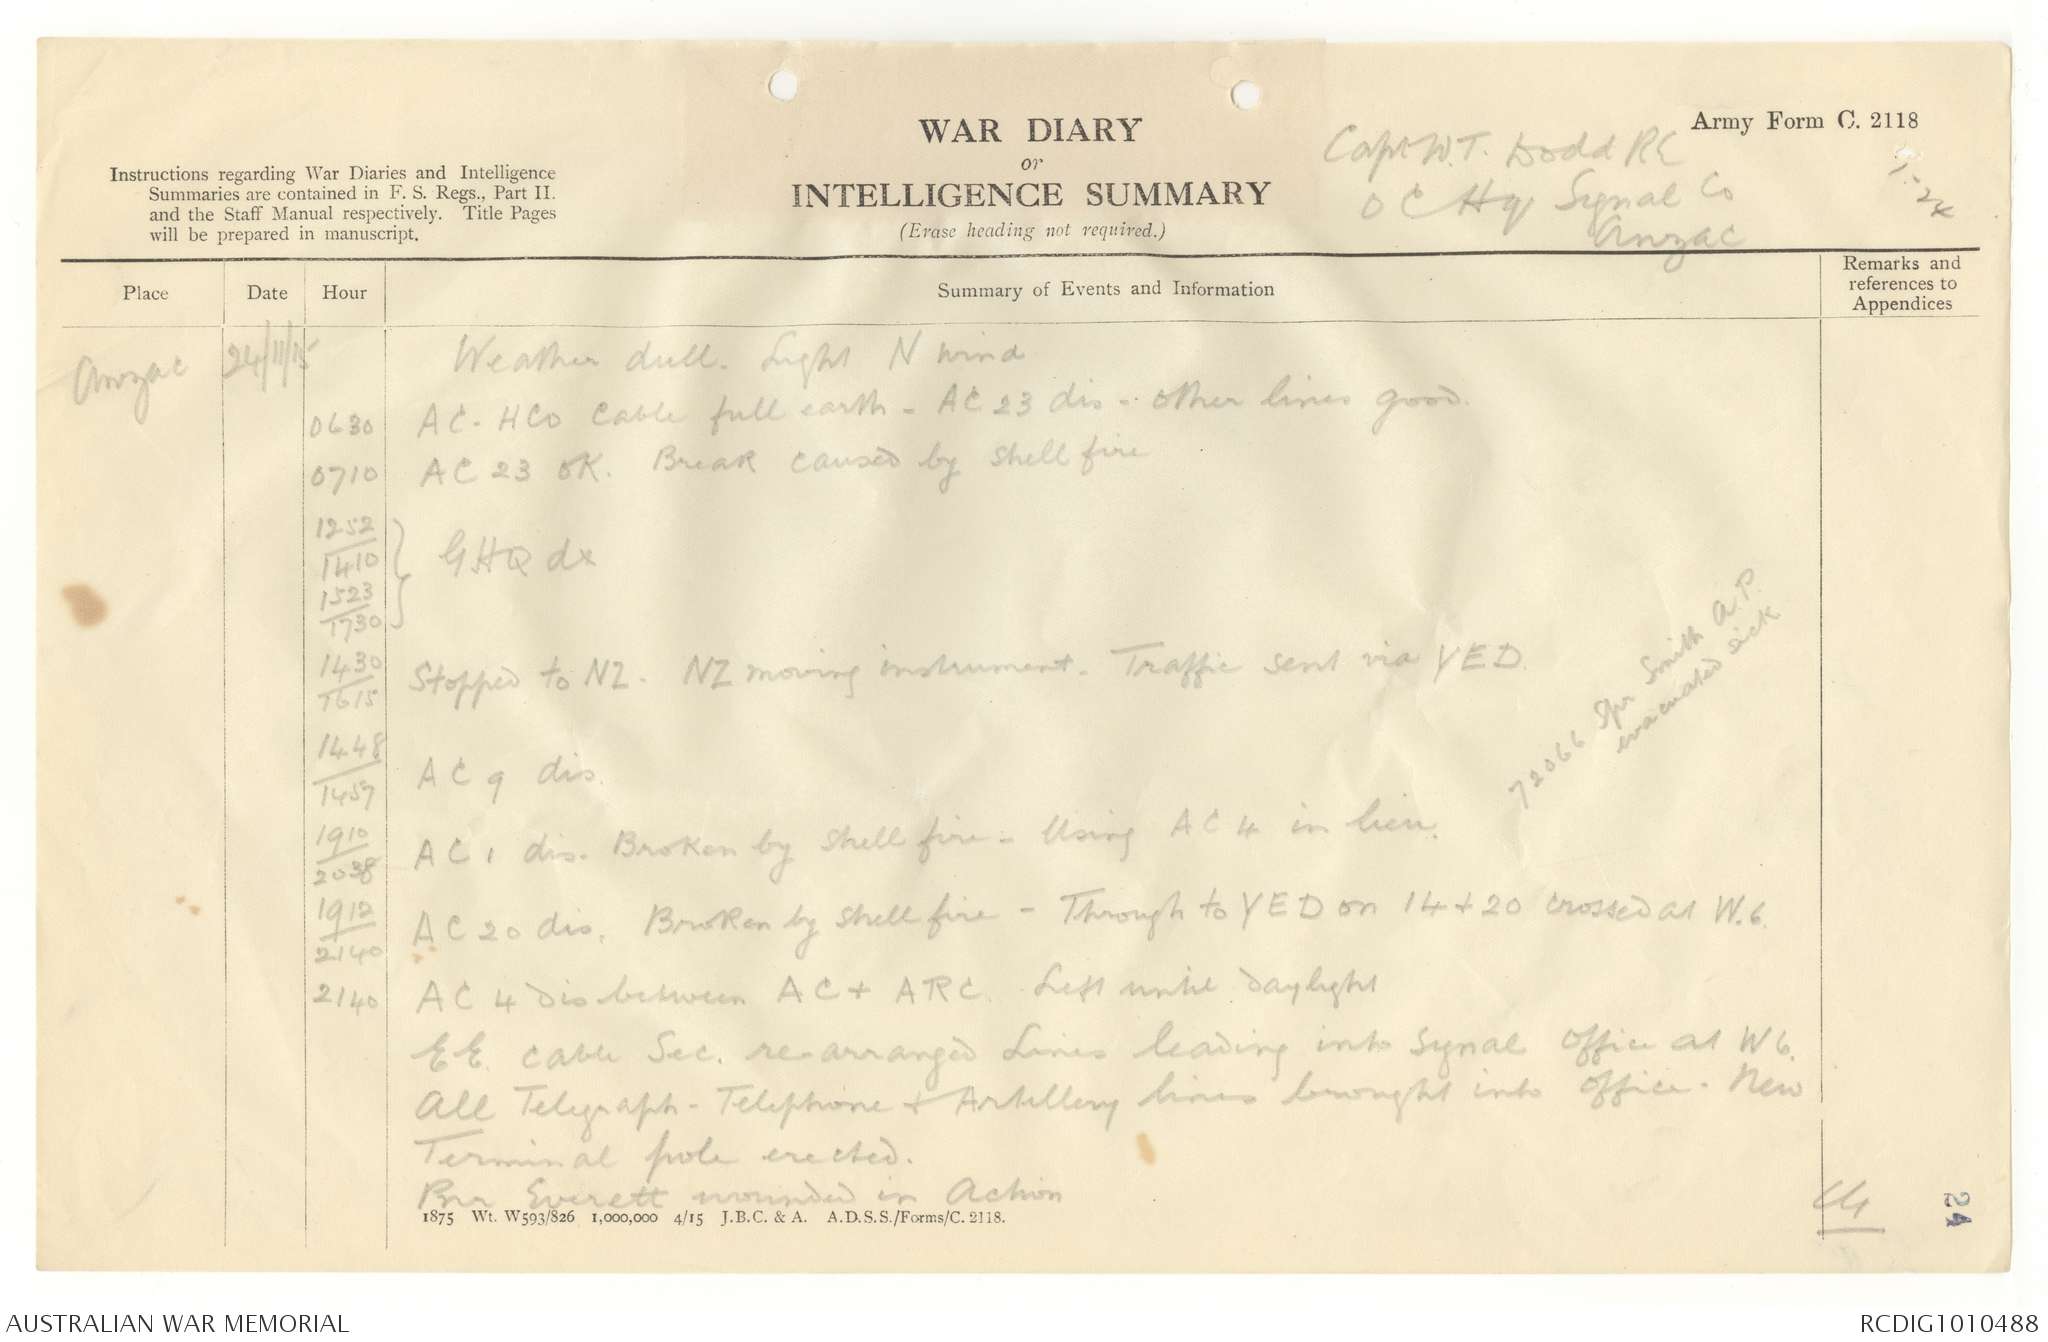 WAR DIARY
or
INTELLIGENCE SUMMARY
(Erase heading not required.)
Army Form C. 2118
Instructions regarding War Diaries and Intelligence
Summaries are contained in F. S. Regs., Part II.
and the Staff Manual respectively. Title Pages
will be prepared in manuscript.
Capt W.T. Dodd RE
O C Hq Signal Co
Anzac
Place Date Hour Summary of Events and Information Remarks and references to Appendices
Anzac 24/11/15 Weather dull. Light N wind
0630 AC - HCO Cable full earth - AC 23 dis - other lines good.
0710 AC 23 OK. Break caused by shell fire
1252
1410 } GHQ dx
1523
1730
1430
1615 Stopped to NZ. NZ moving instrument. Traffic sent via YED.
1448
1457 AC 9 dis.
72066 Spr Smith A.P.
evacuated sick
1910
2038 AC 1 dis. Broken by shell fire - Using AC 4 in lieu.
1912
2140 AC 20 dis. Broken by shell fire - Through to YED on 14 + 20 crossed at W.6.
2140 AC 4 dis between AC + ARC. Left until daylight
EE. Cable Sec. re-arranged Lines leading into Signal Office at W6.
All Telegraph - Telephone + Artillery lines brought into office. New
Terminal pole erected.
Everett wounded in Action
1875 Wt. W593/826 1,000,000 4/15 J.B.C. & A. A.D.S.S./Forms/C. 2118.
24
AUSTRALIAN WAR MEMORIAL
RCDIG1010488